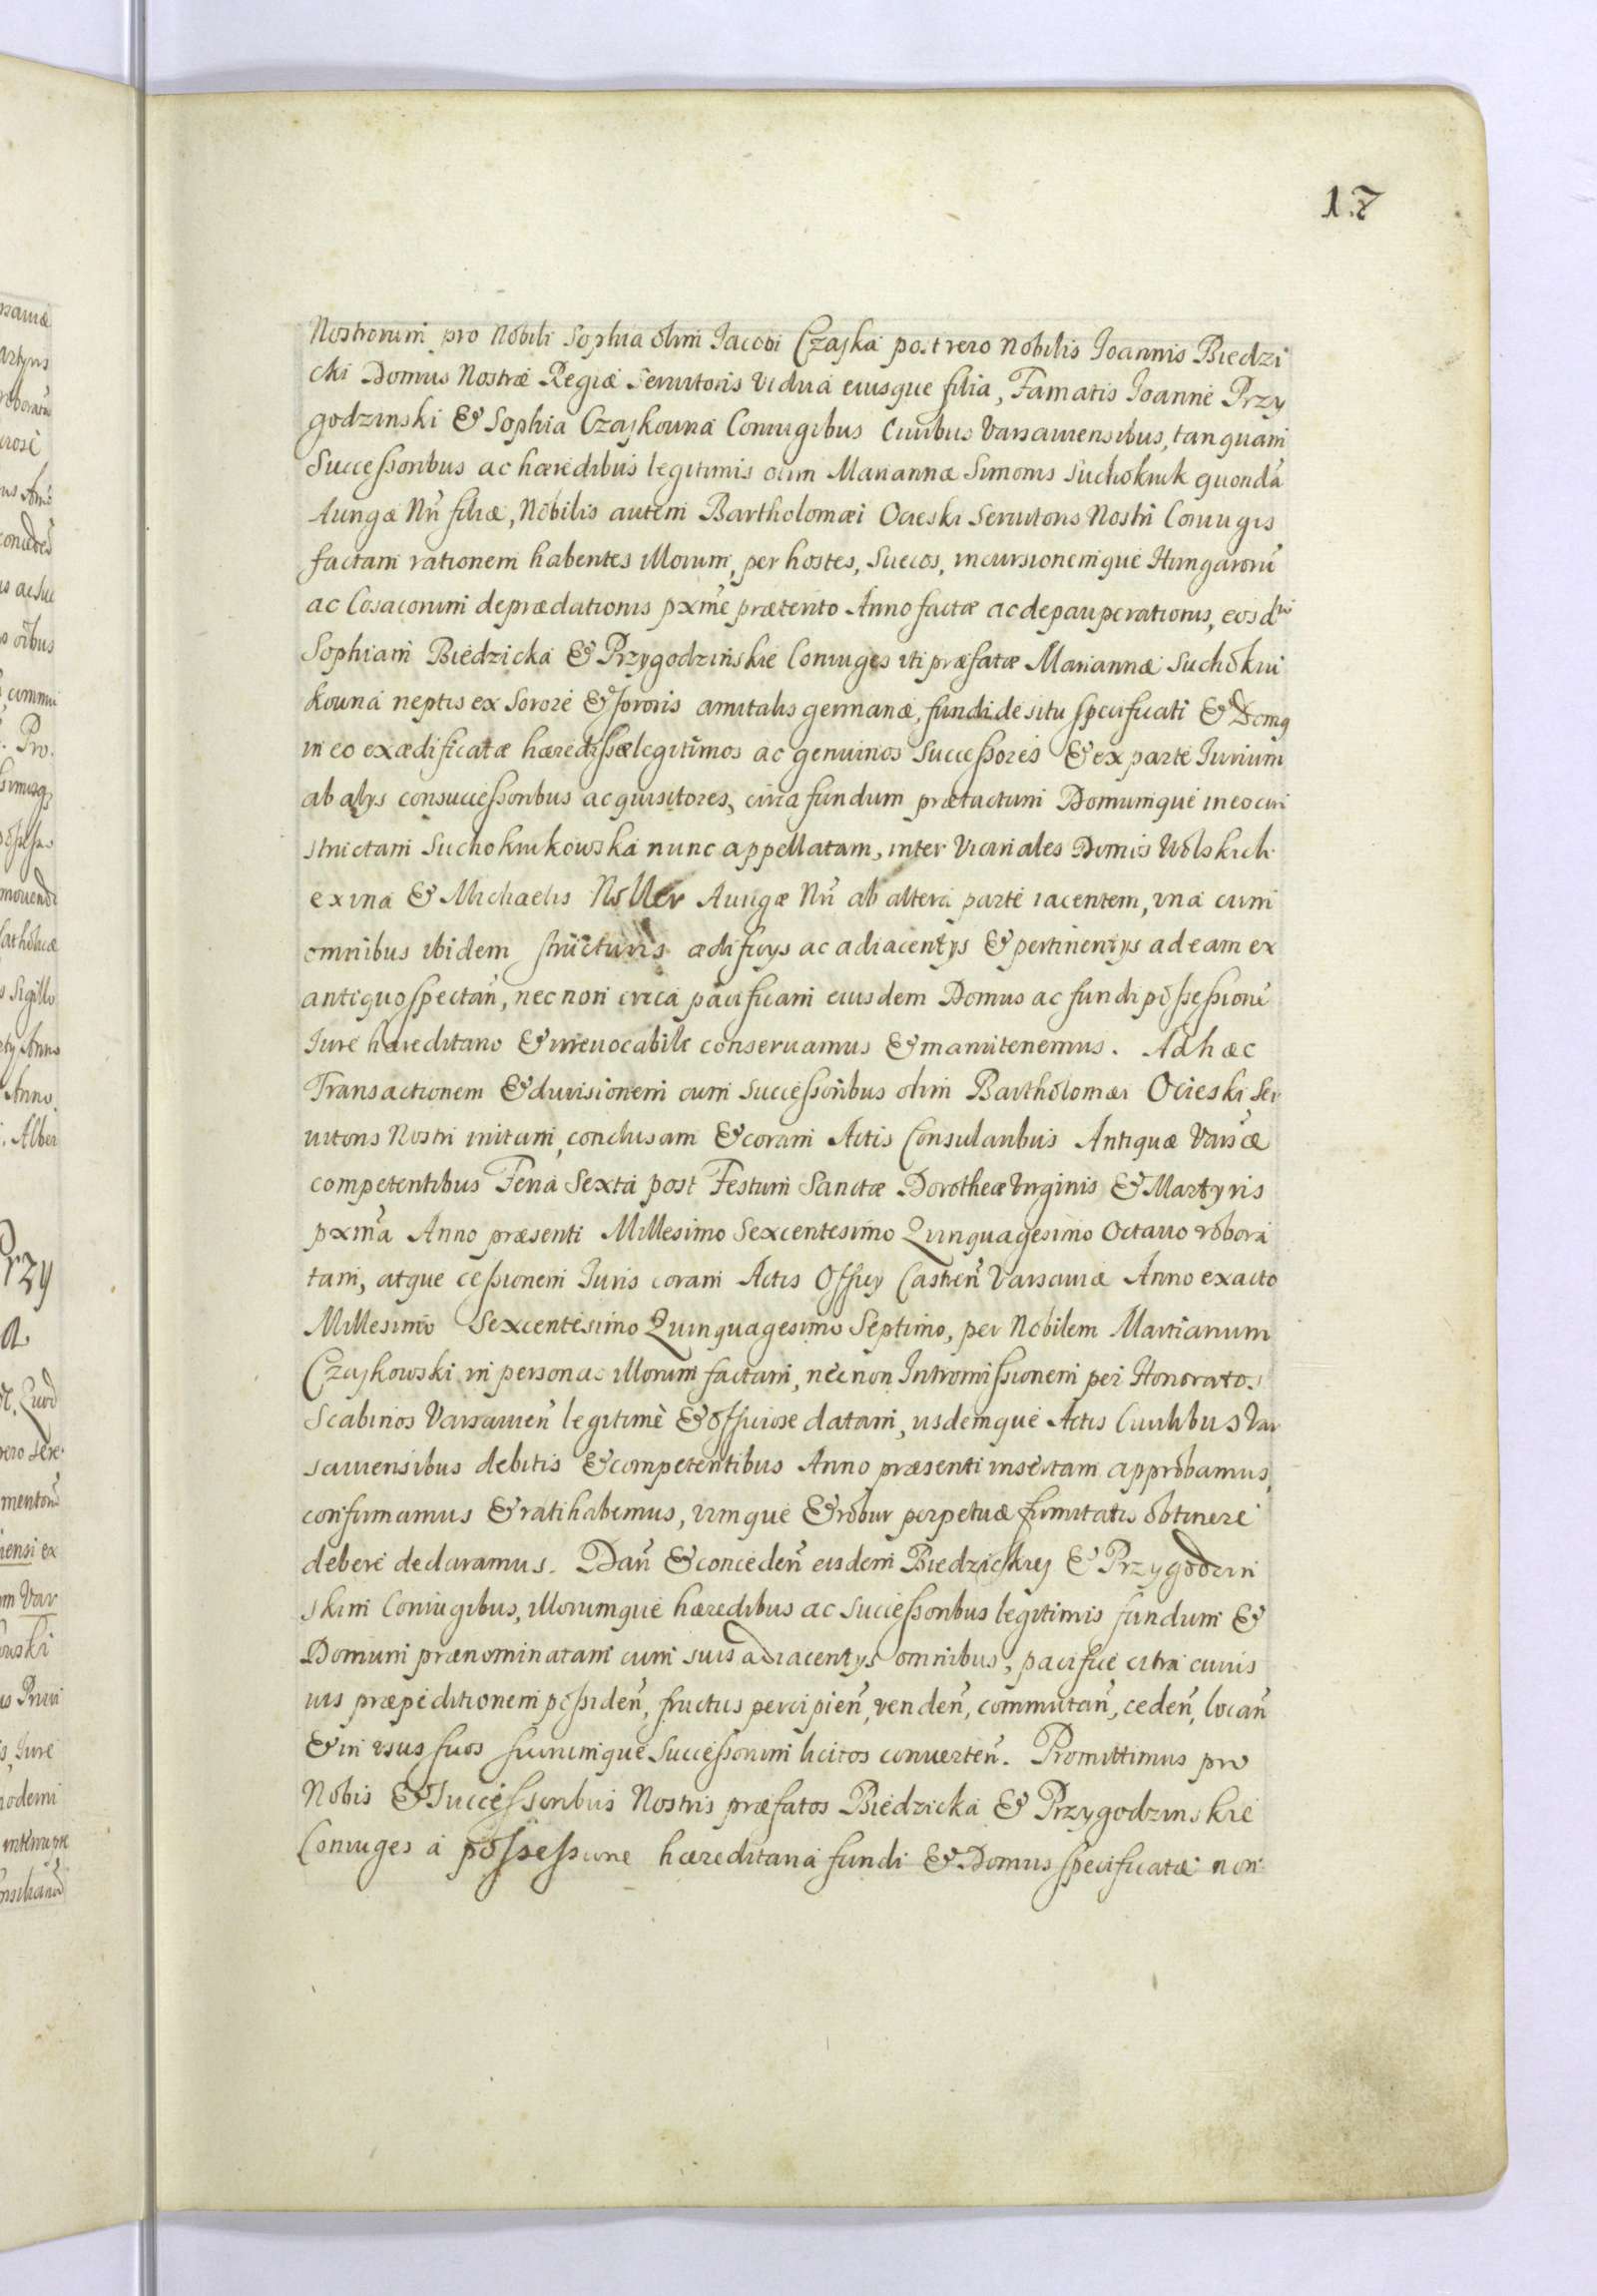 17
Nostrorum pro Nobili Sophia olim Iacobi Czajka post vero Nobilis Ioannis Biedzi
cki Domus Nostræ Regiæ Servitoris Vidua eiusque filia, Famatis Ioanne Przy
godzinski & Sophia Czajkowna Coniugibus Civibus Varsaviensibus, tanquam
Successoribus ac hæredibus legitimis olim Mariannæ Simonis Suchokruk quondã
Aurigæ Nri filiæ, Nobilis autem Bartholomæi Ocieski Servitoris Nostri Coniugis
factam rationem habentes illorum, per hostes, Suecos, incursionemque Hungarorũ
ac Cosacorum deprædationis pxmè præterito Anno factæ ac depauperationis, eosd
Sophiam Biedzicka & Przygodzinskie Coniuges uti præfatæ Mariannæ Suchokru
kowna neptis ex Sorore & Sororis amitalis germanæ, fundi de situ specificati & Domus
in eo exædificatæ hæredissæ legitimos ac genuinos Successores & ex parte Iurium
ab alys consuccessoribus acquisitores, circa fundum prætactum Domumque in eo
strictam Suchokrukowska nunc appellatam, inter Vicinales Domus Wolskich
ex una & Michaelis Noller Aurigæ Nri ab altera parte iacentem, una cum
omnibus ibidem structuris ædificys ac adiacentys & pertinentys ad eam ex
antiquo spectan, nec non circa pacificam eiusdem Domus ac fundi possessionẽ
Iure hæreditario & irrevocabili conservamus & manutenemus. Ad hæc
Transactionem & divisionem cum Successoribus olim Bartholomæi Ocieski Ser
vitoris Nostri initam, conclusam & coram Actis Consularibus Antiquæ Varsæ
competentibus Feria Sexta post Festum Sanctæ Dorotheæ Virginis & Martyris
pxma Anno præsenti Millesimo Sexcentesimo Quinquagesimo Octavo robora
tam, atque cessionem Iuris coram Actis Officy Castren Varsaviæ Anno exacto
Millesimo Sexcentesimo Quinquagesimo Septimo, per Nobilem Martianum
Czajkowski in personas illorum factam, nec non Intromissionem per Honoratos
Scabinos Varsavien legitimè & officiose datam, iisdemque Actis Civilibus Var
saviensibus debitis & competentibus Anno præsenti insertam approbamus,
confirmamus & ratihabemus, vimque & robur perpetuæ firmitatis obtinere
debere declaramus. Dan & conceden eisdem Biedzickiey & Przygodzin
skim Coniugibus, illorumque hæredibus ac Successoribus legitimis fundum &
Domum prænominatam cum suis adiacentys omnibus, pacificè citra cuius
vis præpeditionem possiden, fructus percipien, venden, commutan, ceden, locan
& in usus suos suorumque Successorum licitos converten. Promittimus pro
Nobis & Successoribus Nostris præfatos Biedzicka & Przygodzinskie
Coniuges à possessione hæreditaria fundi & Domus specificatæ non